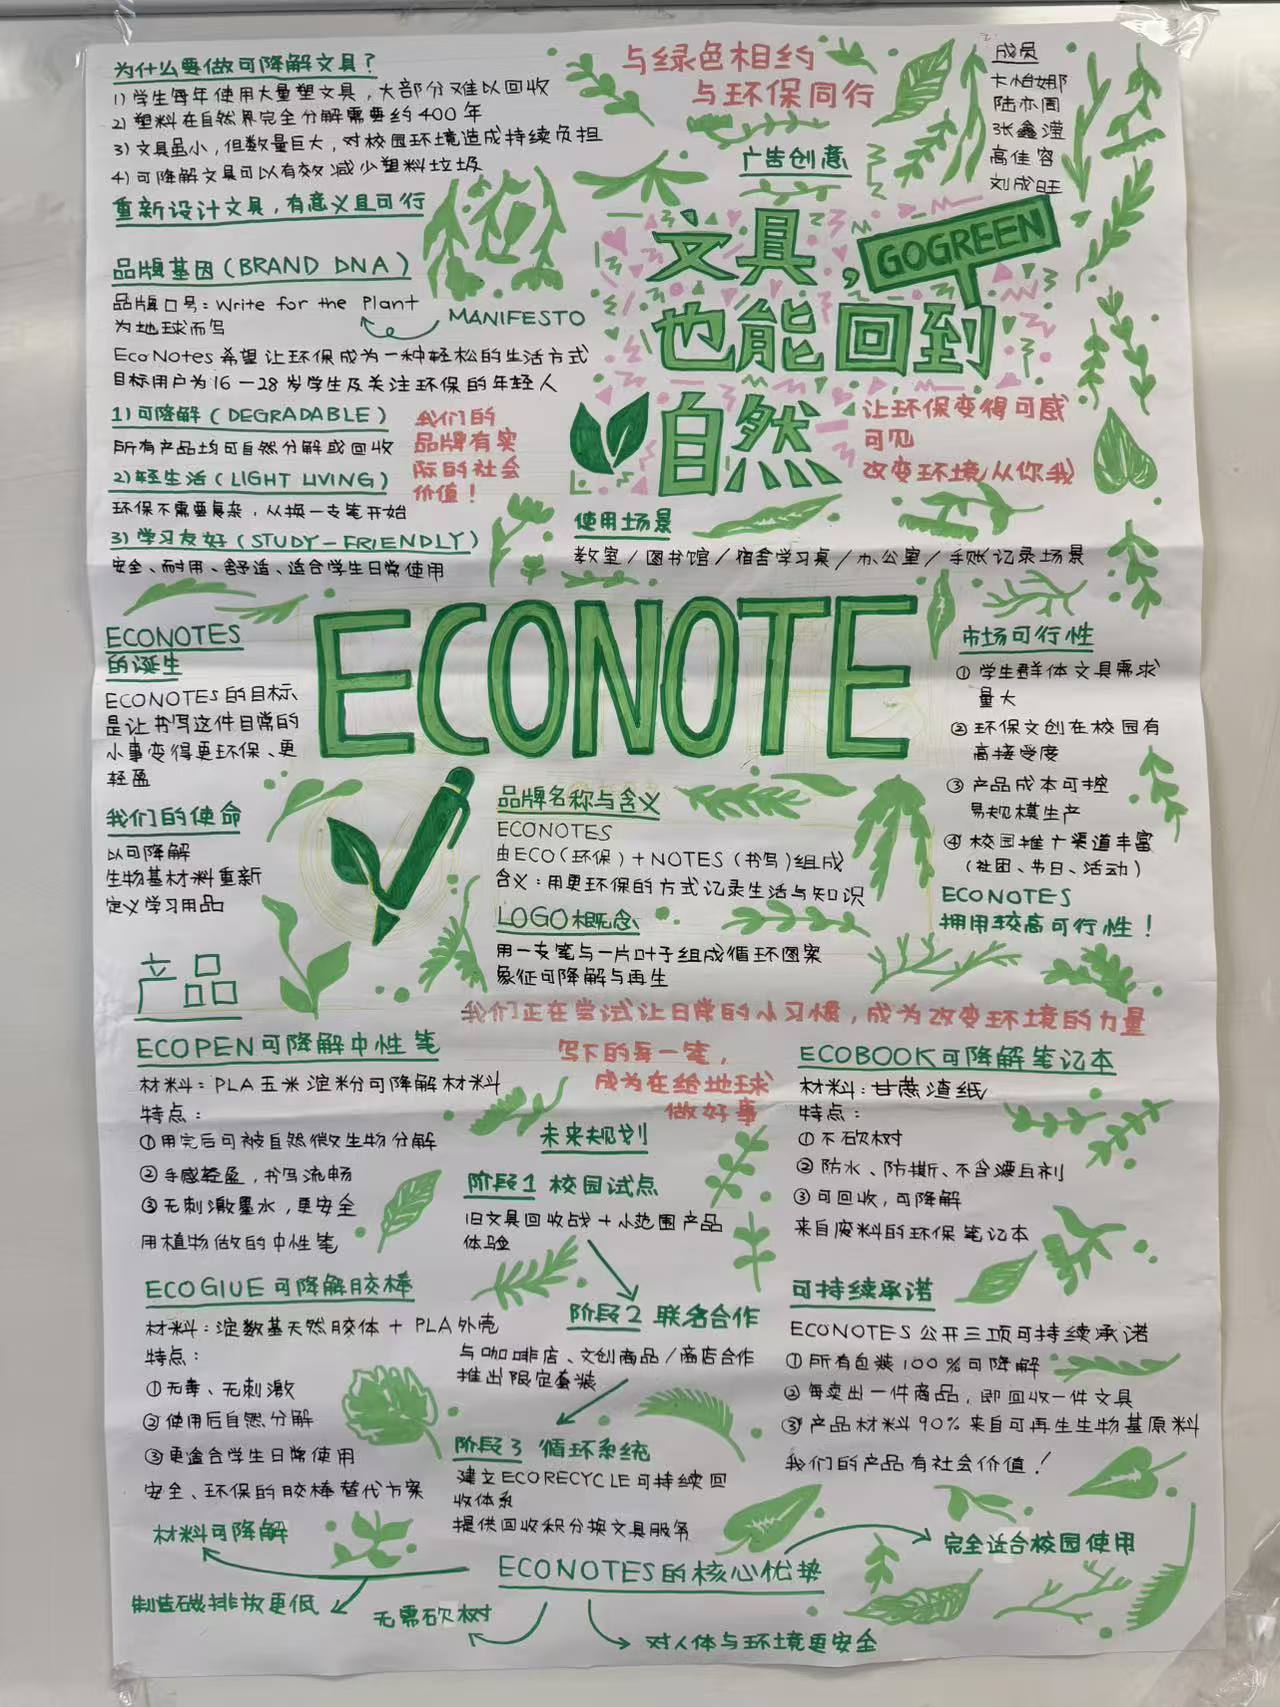 为什么要做可降解文具？
1) 学生每年使用大量塑文具，大部分难以回收
2) 塑料在自然界完全分解需要约400年
3) 文具虽小，但数量巨大，对校园环境造成持续负担
4) 可降解文具可以有效减少塑料垃圾
重新设计文具，有意义且可行
品牌基因（BRAND DNA）
品牌口号：Write for the Plant
为地球而写
MANIFESTO
EcoNotes 希望让环保成为一种轻松的生活方式
目标用户为16－28岁学生及关注环保的年轻人
1) 可降解（DEGRADABLE）
所有产品均可自然分解或回收
2) 轻生活（LIGHT LIVING）
环保不需要复杂，从换一支笔开始
3) 学习友好（STUDY-FRIENDLY）
安全、耐用、舒适、适合学生日常使用
我们的
品牌有实
际的社会
价值！
与绿色相约
与环保同行
广告创意
成员
卡怡娜
陆亦周
张鑫滢
高佳容
刘成旺
文具，
GOGREEN
也能回到
自然
让环保变得可感
可见
改变环境从你我
使用场景
教室／图书馆／宿舍学习桌／办公室／手账记录场景
ECONOTE
ECONOTES
的诞生
ECONOTES的目标
是让书写这件日常的
小事变得更环保、更
轻盈
我们的使命
以可降解
生物基材料重新
定义学习用品
品牌名称与含义
ECONOTES
由ECO（环保）+NOTES（书写）组成
含义：用更环保的方式记录生活与知识
LOGO概念
用一支笔与一片叶子组成循环图案
象征可降解与再生
市场可行性
① 学生群体文具需求
量大
② 环保文创在校园有
高接受度
③ 产品成本可控
易规模生产
④ 校园推广渠道丰富
（社团、节日、活动）
ECONOTES
拥用较高可行性！
我们正在尝试让日常的小习惯，成为改变环境的力量
产品
ECOPEN可降解中性笔
材料：PLA玉米淀粉可降解材料
特点：
①用完后可被自然微生物分解
②手感轻盈，书写流畅
③无刺激墨水，更安全
用植物做的中性笔
ECOGIUE可降解胶棒
材料：淀数基天然胶体 + PLA外壳
特点：
①无毒、无刺激
②使用后自然分解
③更适合学生日常使用
安全、环保的胶棒替代方案
写下的每一笔，
成为在给地球
做好事
未来规划
阶段1 校园试点
旧文具回收战 + 小范围产品
体验
阶段2 联名合作
与咖啡店、文创商品／商店合作
推出限定套装
阶段3 循环系统
建立ECORECYCLE可持续回
收体系
提供回收积分换文具服务
ECOBOOK可降解笔记本
材料：甘蔗渣纸
特点：
①不砍树
②防水、防撕、不含漂白剂
③可回收，可降解
来自废料的环保笔记本
可持续承诺
ECONOTES公开三项可持续承诺
①所有包装100%可降解
②每卖出一件商品，即回收一件文具
③产品材料90%来自可再生生物基原料
我们的产品有社会价值！
ECONOTES的核心优势
材料可降解
制造碳排放更低
无需砍树
对人体与环境更安全
完全适合校园使用